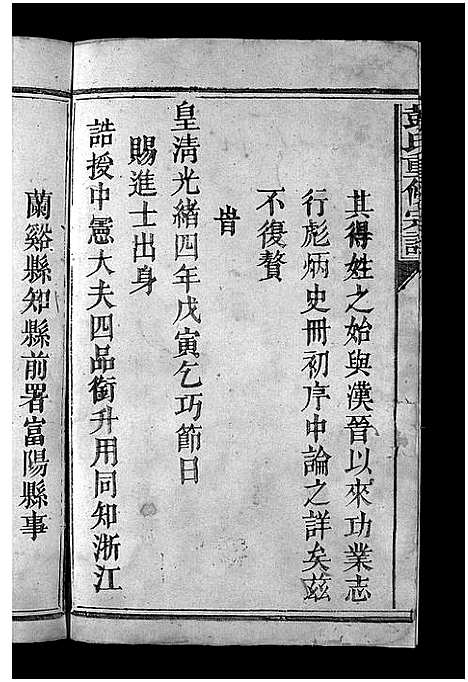 彭氏重修宗譜
其得姓之始與漢晉以來功業志
行彪炳史冊初序中論之詳矣茲
不復贅
旹
皇清光緒四年戊寅乞巧節日
賜進士出身
誥授中憲大夫四品銜升用同知浙江
蘭谿縣知縣前署富陽縣事